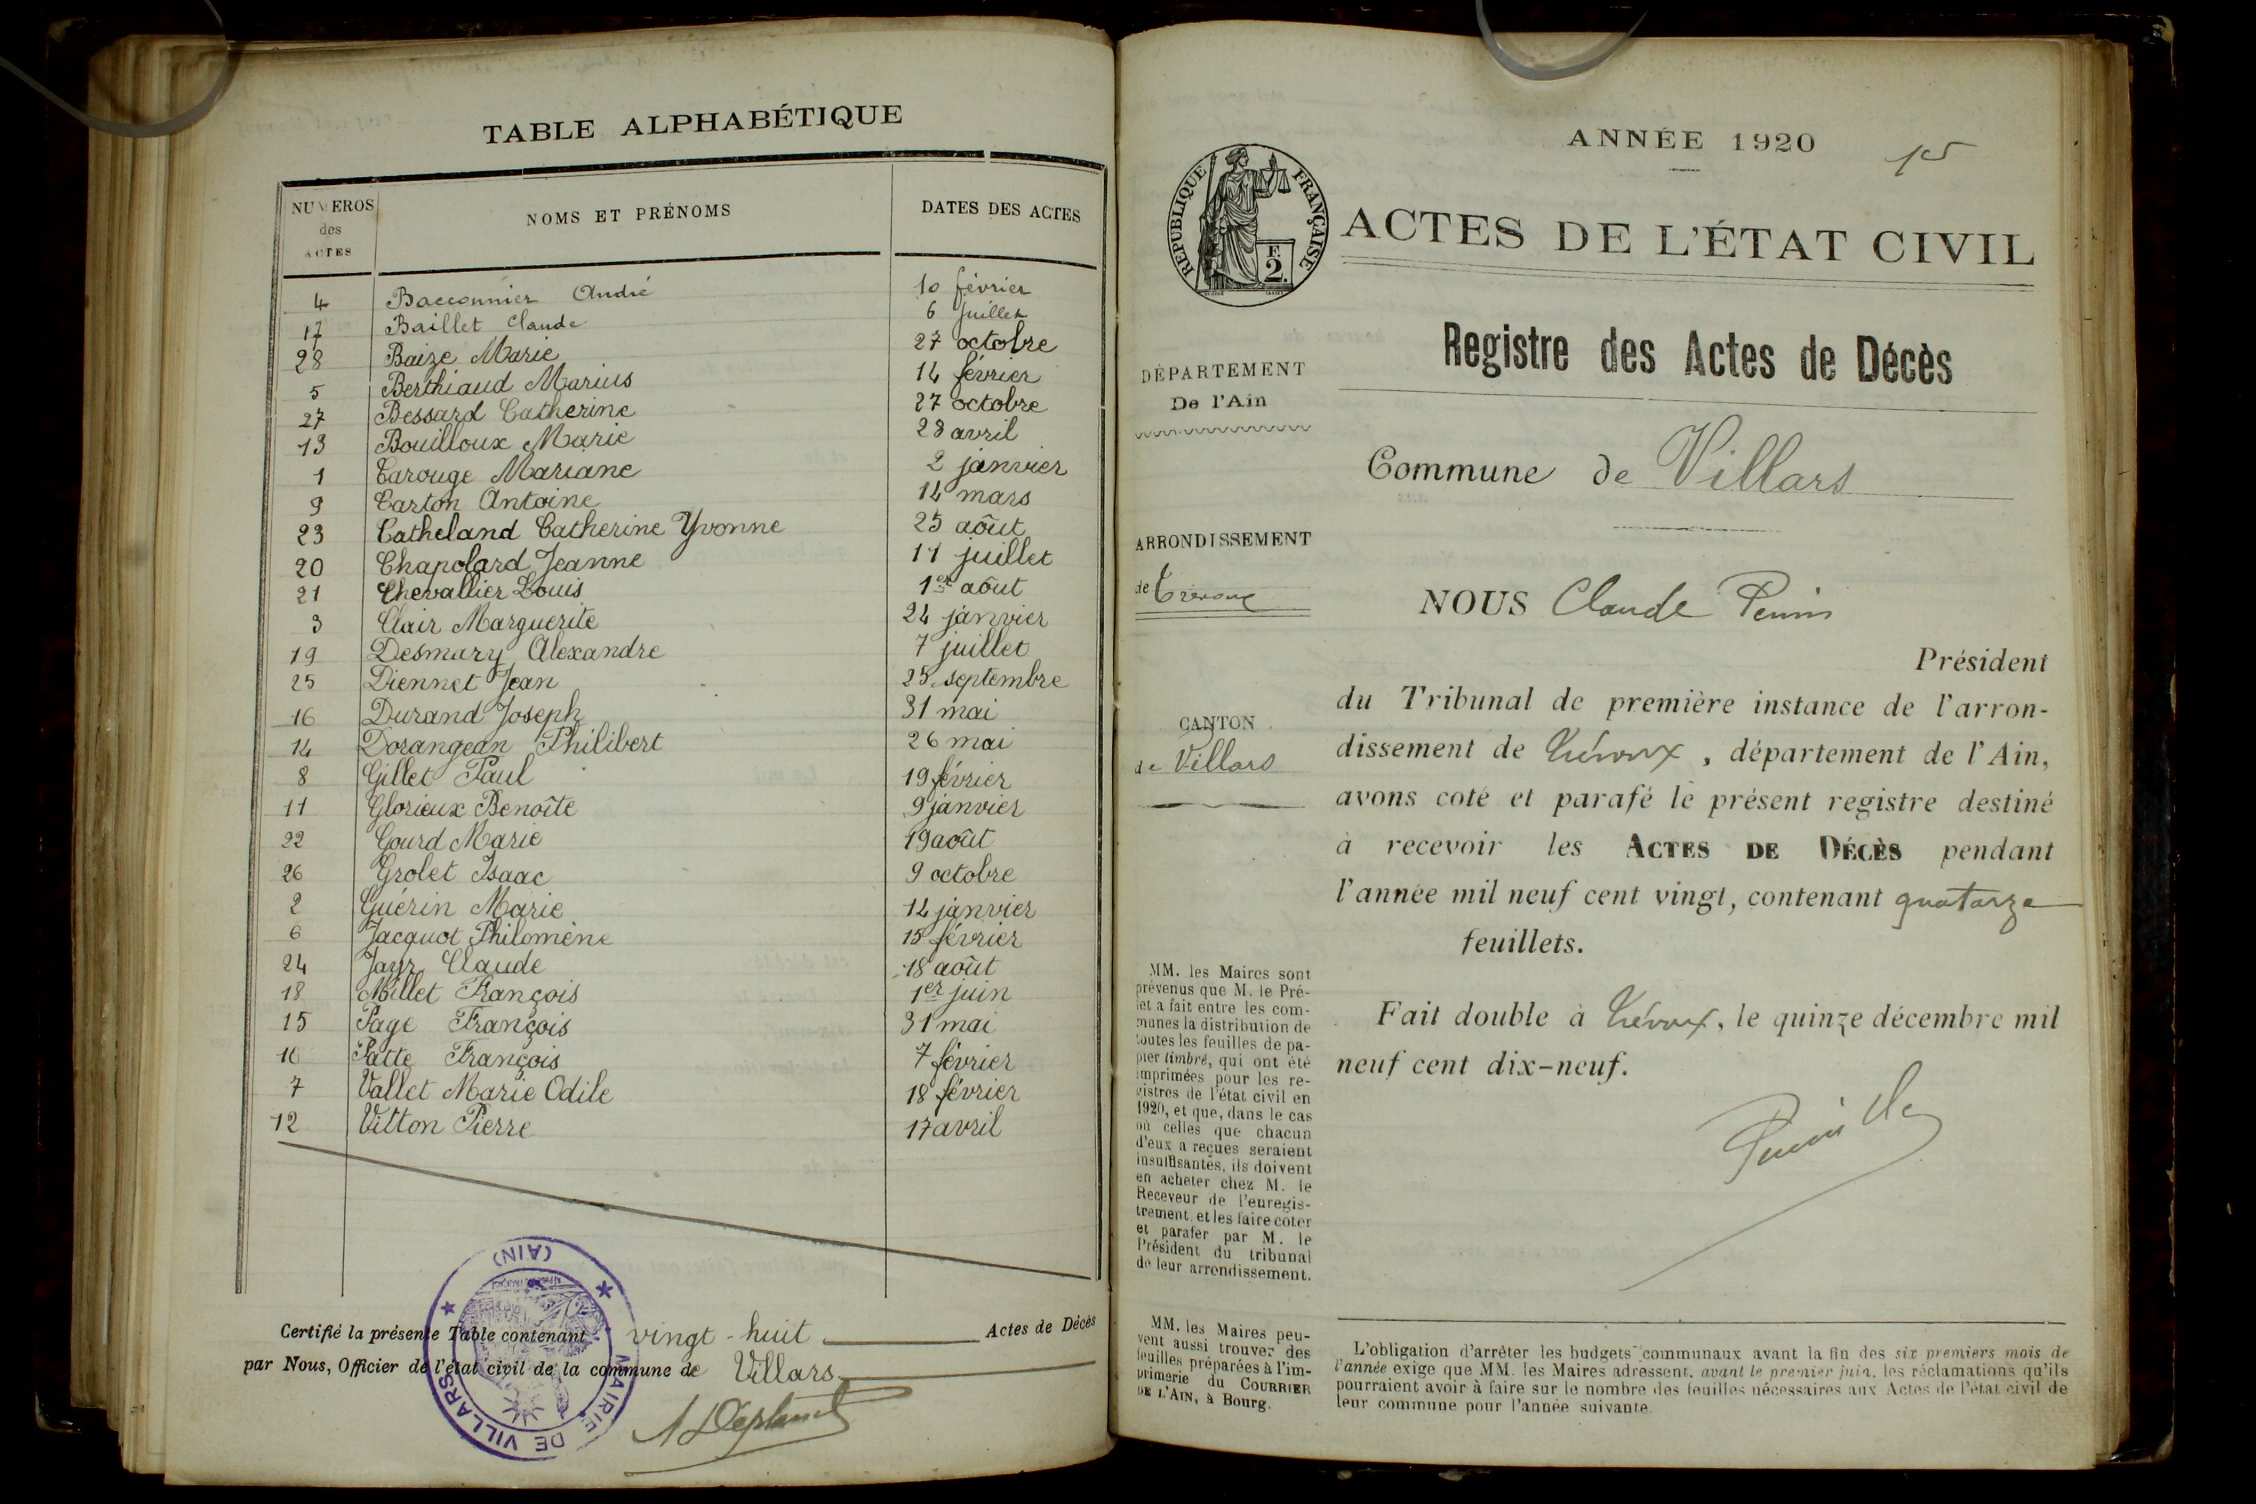 TABLE ALPHABÉTIQUE
NUMEROS des ACTES
NOMS ET PRÉNOMS
DATES DES ACTES
4 Bacconnier André 10 février
17 Baillet Claude 6 Juillet
28 Baize Marie 27 octobre
5 Berthiaud Marius 14 février
27 Bessard Catherine 27 octobre
13 Bouilloux Marie 28 avril
1 Carouge Mariane 2 janvier
9 Carton Antoine 14 mars
23 Catheland Catherine Yvonne 25 août
20 Chapolard Jeanne 11 juillet
21 Chevallier Louis 1er août
3 Clair Marguerite 24 janvier
19 Desmary Alexandre 7 juillet
25 Diennet Jean 25 septembre
16 Durand Joseph 31 mai
14 Dorangean Philibert 26 mai
8 Gillet Paul 19 février
11 Glorieux Benoîte 9 janvier
22 Gourd Marie 19 août
26 Grolet Isaac 9 octobre
2 Guérin Marie 14 janvier
6 Jacquot Philomène 15 février
24 Jayr Claude 18 août
18 Millet François 1er juin
15 Page François 31 mai
10 Patte François 7 février
7 Vallet Marie Odile 18 février
12 Vitton Pierre 17 avril
Certifié la présente Table contenant vingt-huit Actes de Décès
par Nous, Officier de l'état civil de la commune de Villars
MAIRIE DE VILLARS
(AIN)
ANNÉE 1920
1er
RÉPUBLIQUE FRANÇAISE
F. 2
ACTES DE L'ÉTAT CIVIL
Registre des Actes de Décès
DÉPARTEMENT
De l'Ain
Commune de Villars
ARRONDISSEMENT
de Trévoux
NOUS Claude
Président
du Tribunal de première instance de l'arron-
dissement de Trévoux, département de l'Ain,
avons coté et parafé le présent registre destiné
à recevoir les ACTES DE DÉCÈS pendant
l'année mil neuf cent vingt, contenant quatorze
feuillets.
CANTON
de Villars
Fait double à Trévoux, le quinze décembre mil
neuf cent dix-neuf.
MM. les Maires sont
prévenus que M. le Pré-
fet a fait entre les com-
munes la distribution de
toutes les feuilles de pa-
pier timbré, qui ont été
imprimées pour les re-
gistres de l'état civil en
1920, et que, dans le cas
où celles que chacun
d'eux a reçues seraient
insuffisantes, ils doivent
en acheter chez M. le
Receveur de l'enregis-
trement, et les faire coter
et parafer par M. le
Président du tribunal
de leur arrondissement.
MM. les Maires peu-
vent aussi trouver des
feuilles préparées à l'im-
primerie du COURRIER
DE L'AIN, à Bourg.
L'obligation d'arrêter les budgets communaux avant la fin des six premiers mois de
l'année exige que MM. les Maires adressent, avant le premier juin, les réclamations qu'ils
pourraient avoir à faire sur le nombre des feuilles nécessaires aux Actes de l'état civil de
leur commune pour l'année suivante.